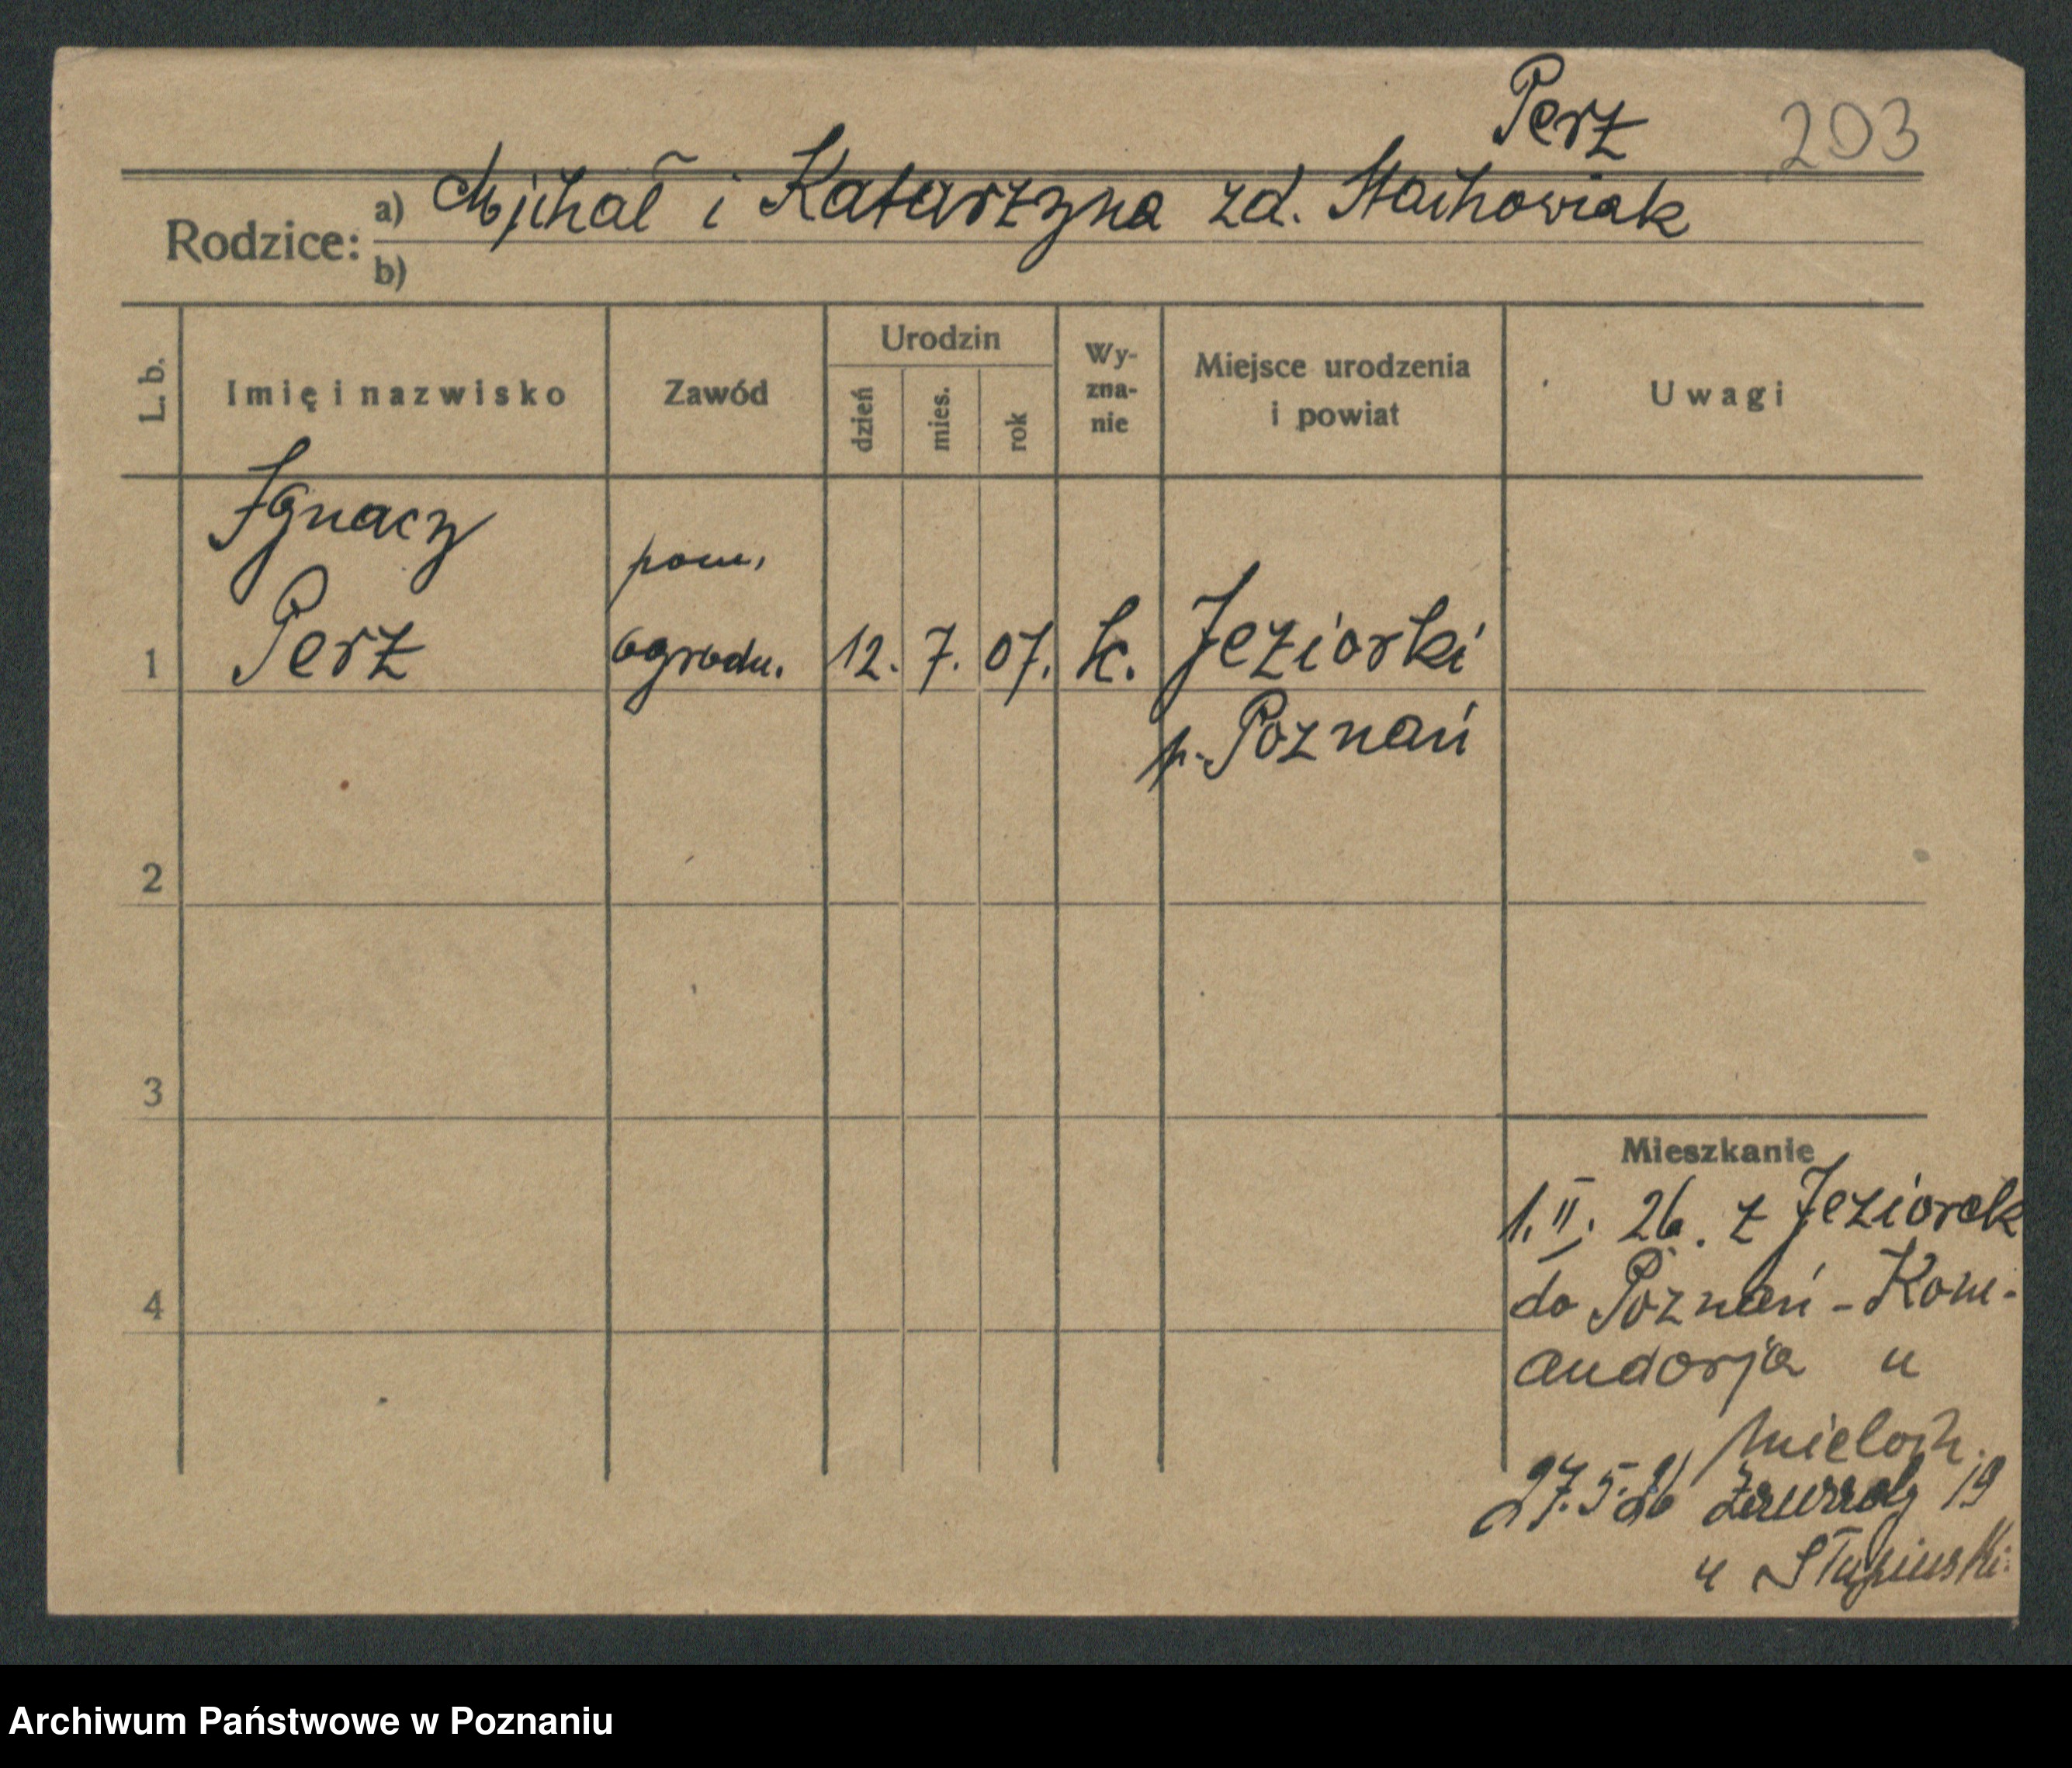 Perz 203
Rodzice: a) Michał i Katarzyna zd. Stachowiak
b)
L. b. Imię i nazwisko Zawód Urodzin dzień mies. rok Wy-zna-nie Miejsce urodzenia i powiat Uwagi
Ignacy
pom.
1 Perz ogrodn. 12. 7. 07. k. Jeziorki
p. Poznań
2
3
Mieszkanie
1. II. 26. z Jeziorek
4 do Poznań - Kom-
andorja u
Mieloch.
27.5.26 19
u Słupinski.
Archiwum Państwowe w Poznaniu